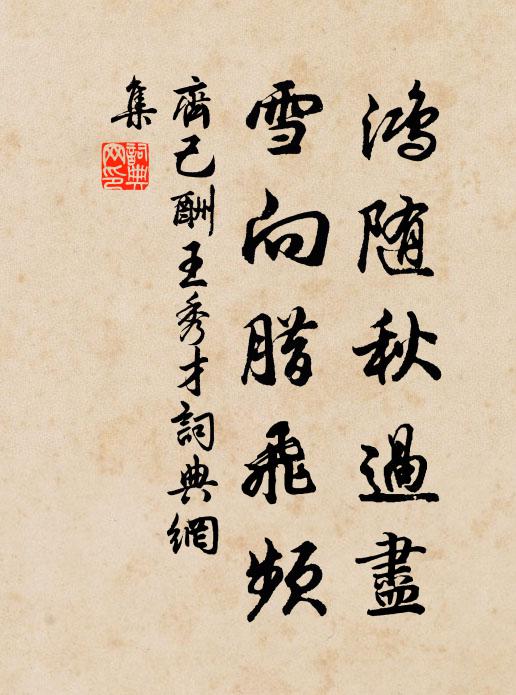 鴻随秋過盡
雪向腊飛頻
齊己酬王秀才詞典網
集
詞典
网印